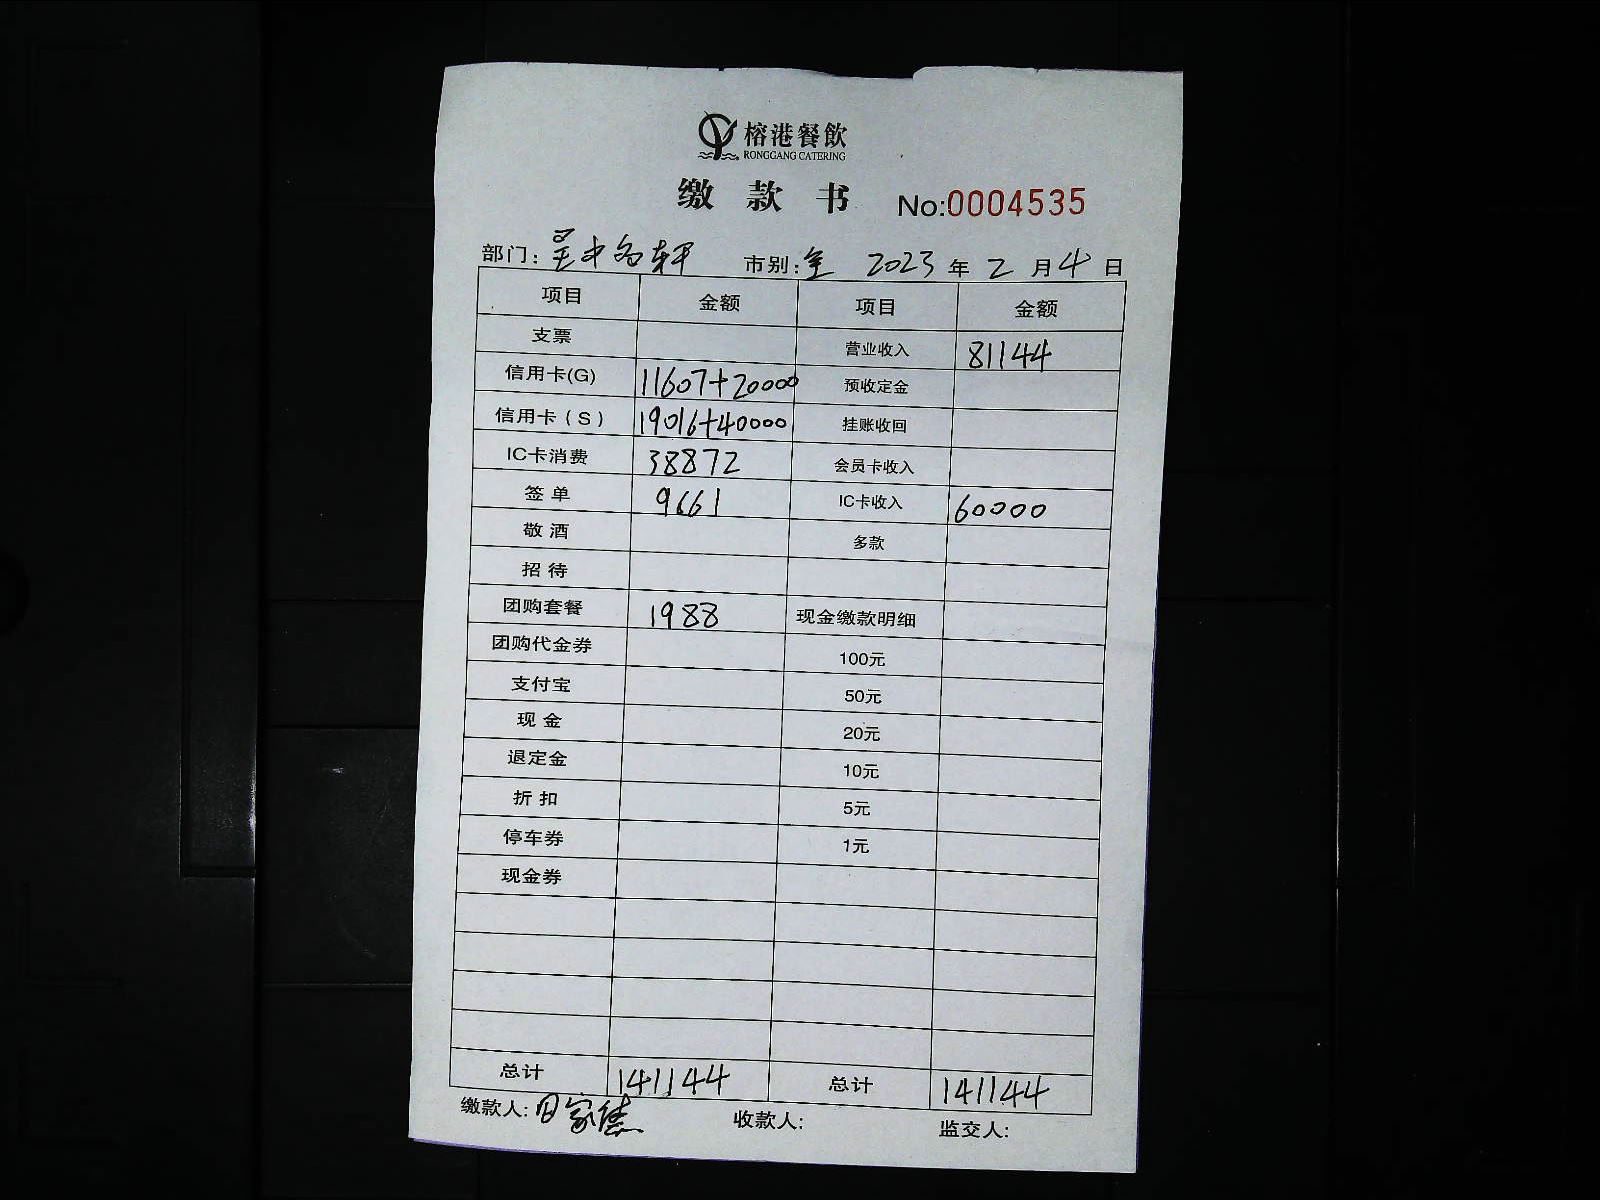 榕港餐飲
RONGGANG CATERING
缴款书 No:0004535
部门: 市别:全 2023年2月4日
项目 金额 项目 金额
支票 营业收入 81144
信用卡(G) 11607+20000 预收定金
信用卡(S) 19016+40000 挂账收回
IC卡消费 38872 会员卡收入
签单 9661 IC卡收入 60000
敬酒 多款
招待
团购套餐 1988 现金缴款明细
团购代金券 100元
支付宝 50元
现金 20元
退定金 10元
折扣 5元
停车券 1元
现金券
总计 141144 总计 141144
缴款人: 收款人: 监交人: